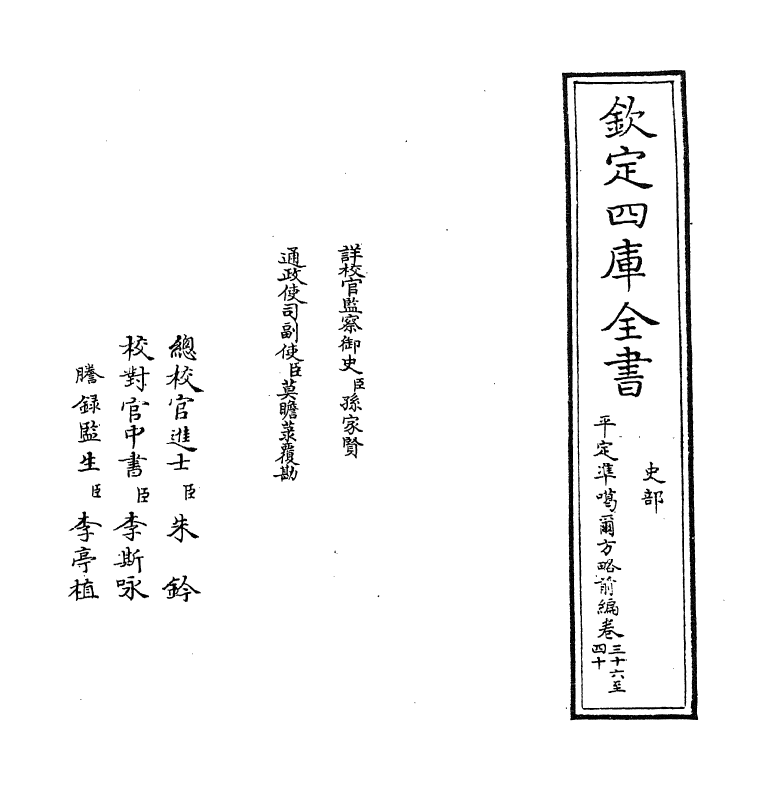 欽定四庫全書
史部
平定準噶爾方略前編卷三十六至四十
詳校官監察御史臣孫家賢
通政使司副使臣莫瞻菉覆勘
總校官進士臣朱鈐
校對官中書臣李斯咏
謄録監生臣李亭植